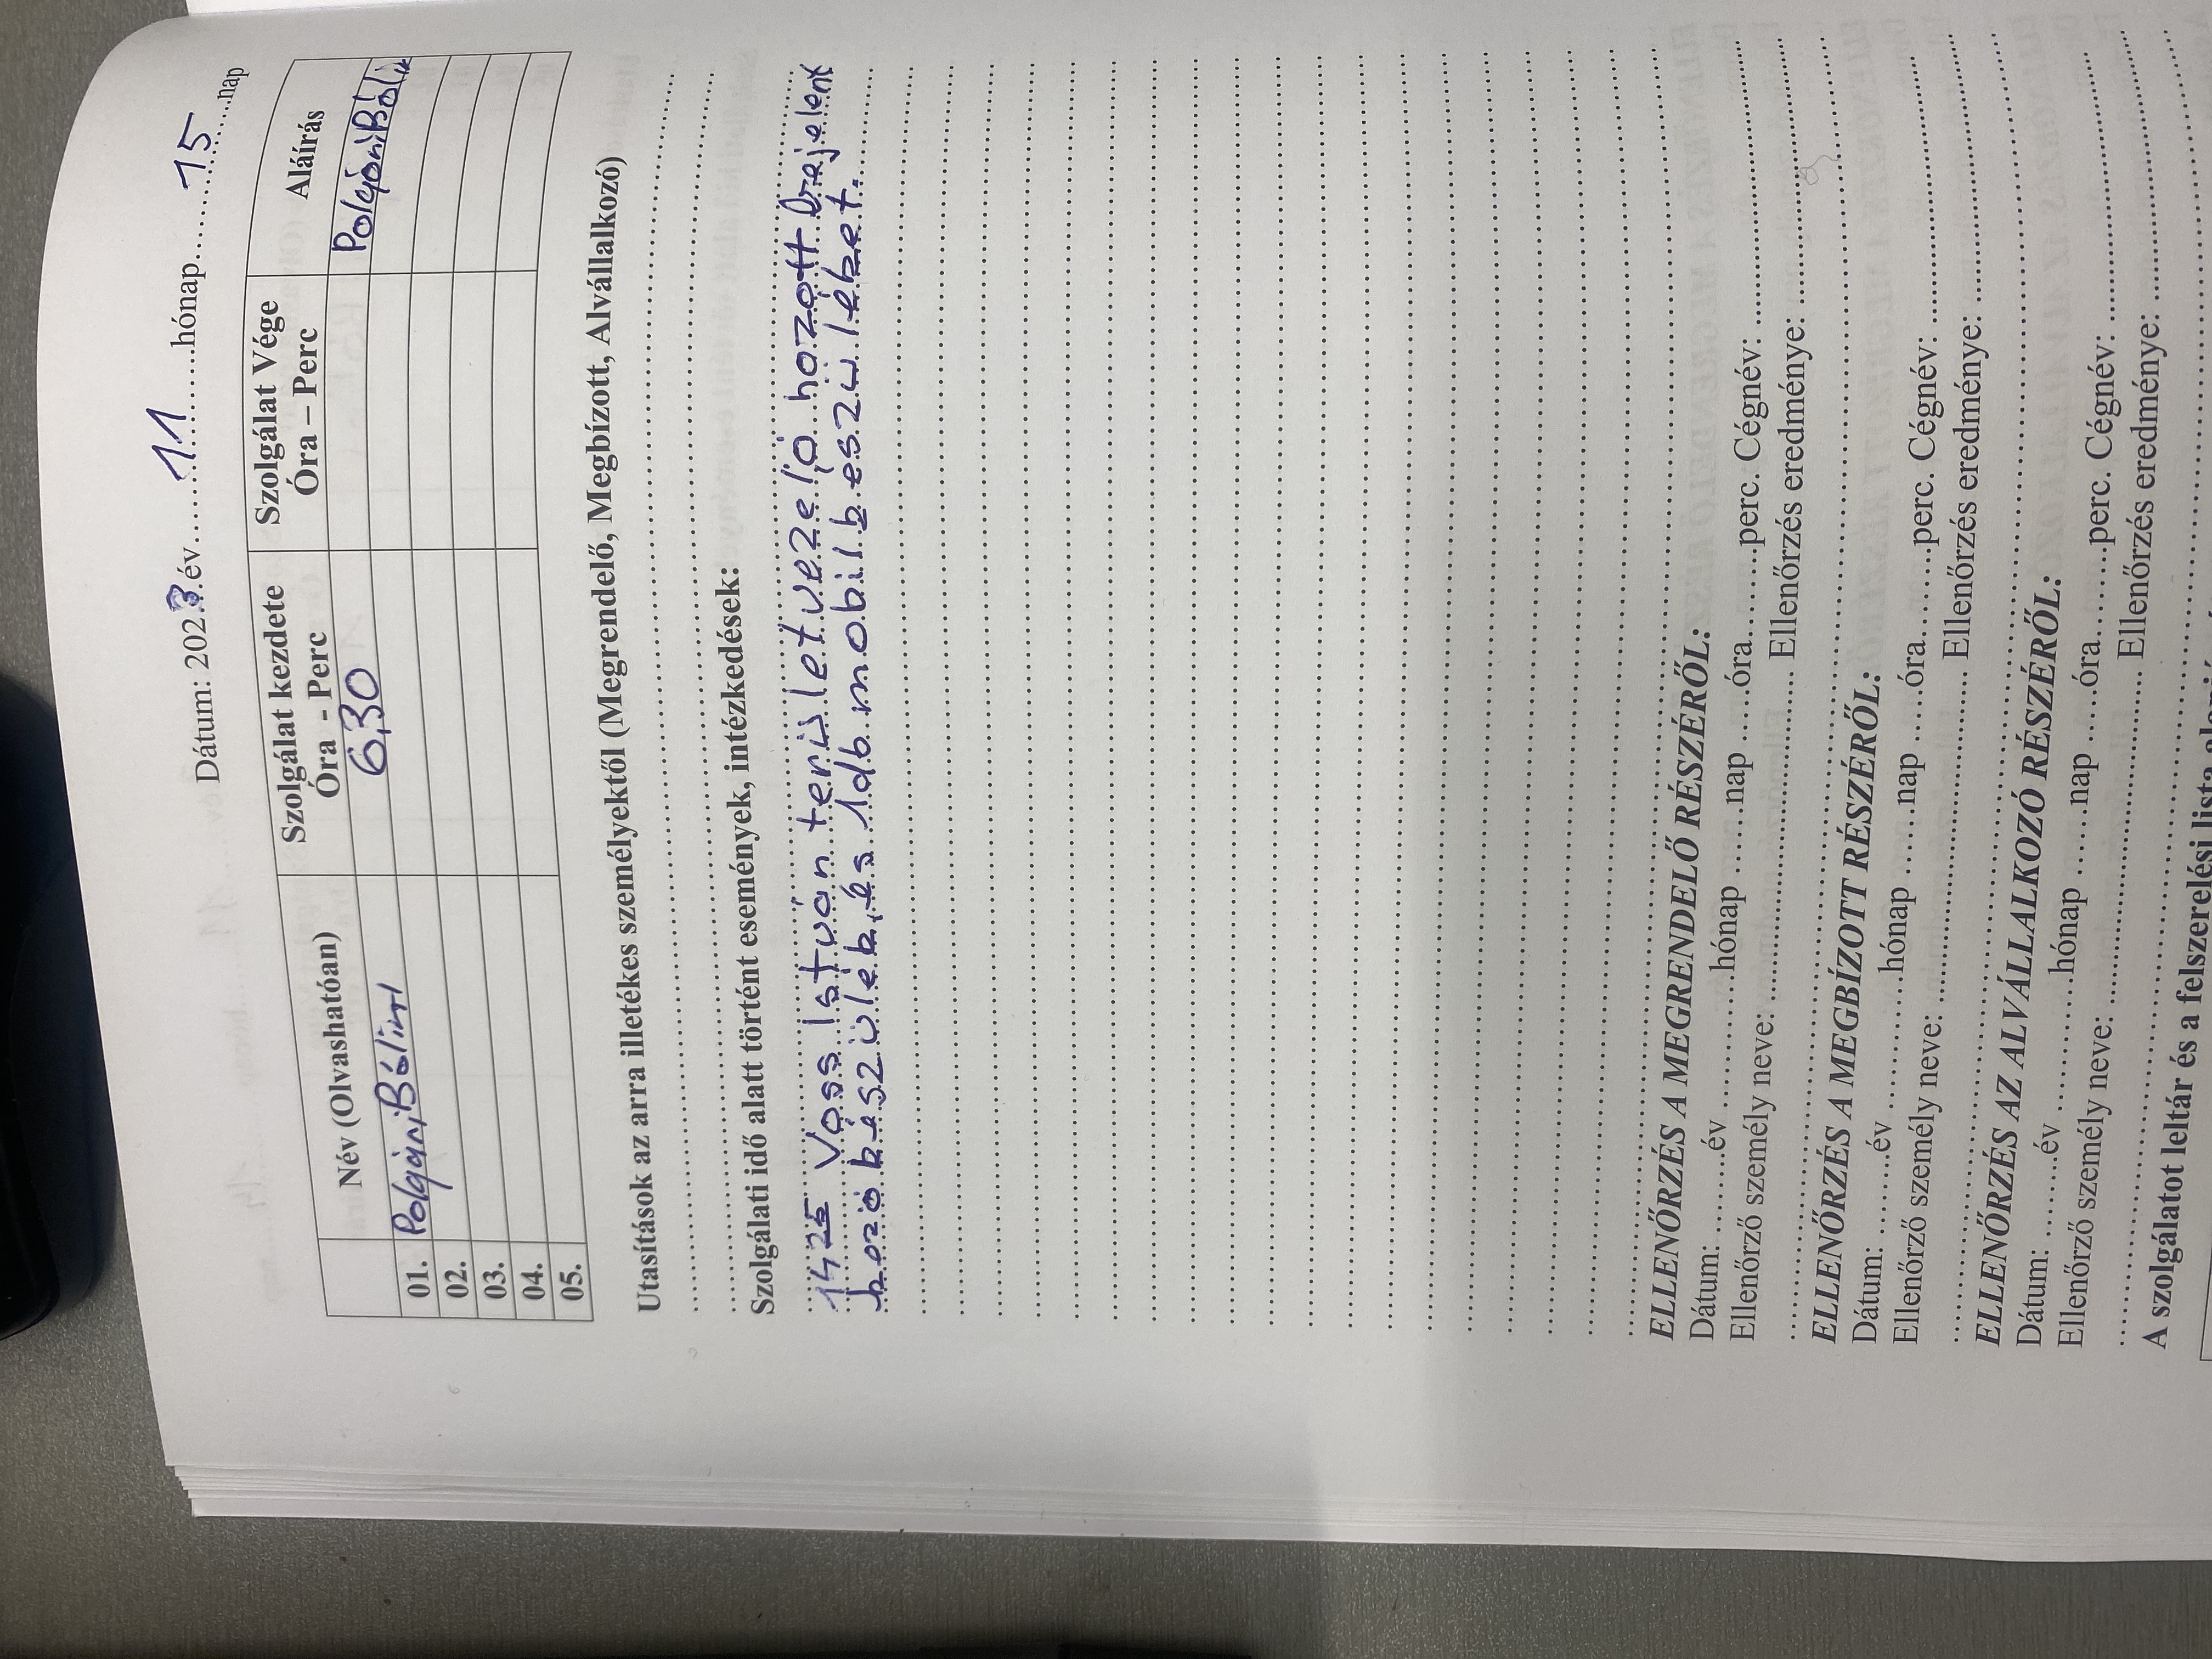 Dátum: 2023.év......11......hónap......15......nap
Név (Olvashatóan) Szolgálat kezdete Óra - Perc Szolgálat Vége Óra – Perc Aláírás
01. Polgári Bálint 6,30 Polgári Bálin
02.
03.
04.
05.
Utasítások az arra illetékes személyektől (Megrendelő, Megbízott, Alvállalkozó)
Szolgálati idő alatt történt események, intézkedések:
1425 Vass István területvezető hozott órajelent
kező készülék, és 1db mobil készüléket.
ELLENŐRZÉS A MEGRENDELŐ RÉSZÉRŐL:
Dátum: ........év ............hónap ......nap ....óra......perc. Cégnév: ..............
Ellenőrző személy neve: .............. Ellenőrzés eredménye: ..............
ELLENŐRZÉS A MEGBÍZOTT RÉSZÉRŐL:
Dátum: ........év ............hónap ......nap ....óra......perc. Cégnév: ..............
Ellenőrző személy neve: .............. Ellenőrzés eredménye: ..............
ELLENŐRZÉS AZ ALVÁLLALKOZÓ RÉSZÉRŐL:
Dátum: ........év ............hónap ......nap ....óra......perc. Cégnév: ..............
Ellenőrző személy neve: .............. Ellenőrzés eredménye: ..............
A szolgálatot leltár és a felszerelési lista